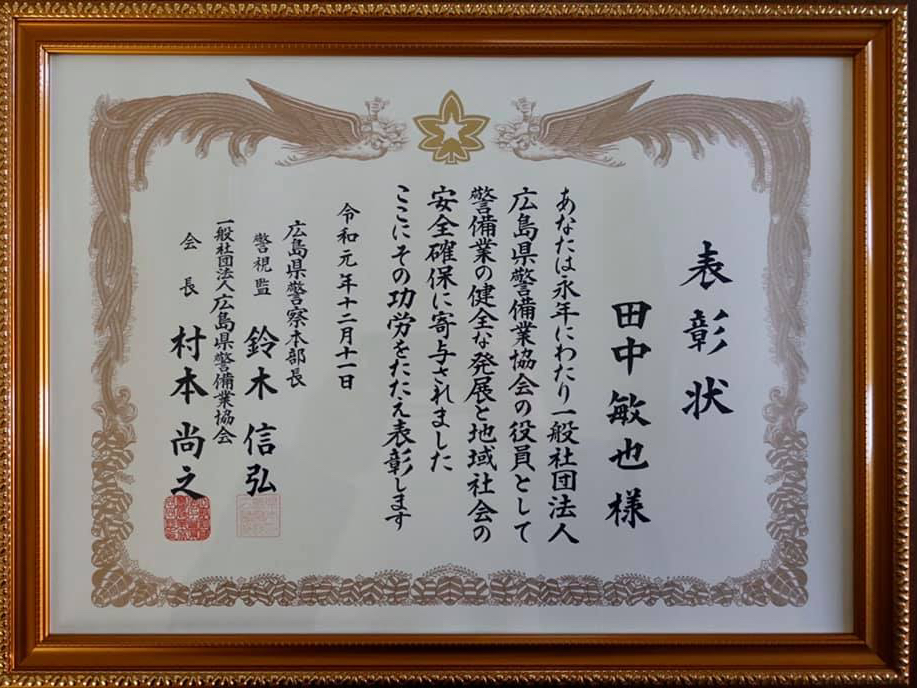 表彰状
田中敏也様
あなたは永年にわたり一般社団法人
広島県警備業協会の役員として
警備業の健全な発展と地域社会の
安全確保に寄与されました
ここにその功労をたたえ表彰します
令和元年十二月十一日
広島県警察本部長
警視監 鈴木信弘
一般社団法人広島県警備業協会
会長 村本尚之